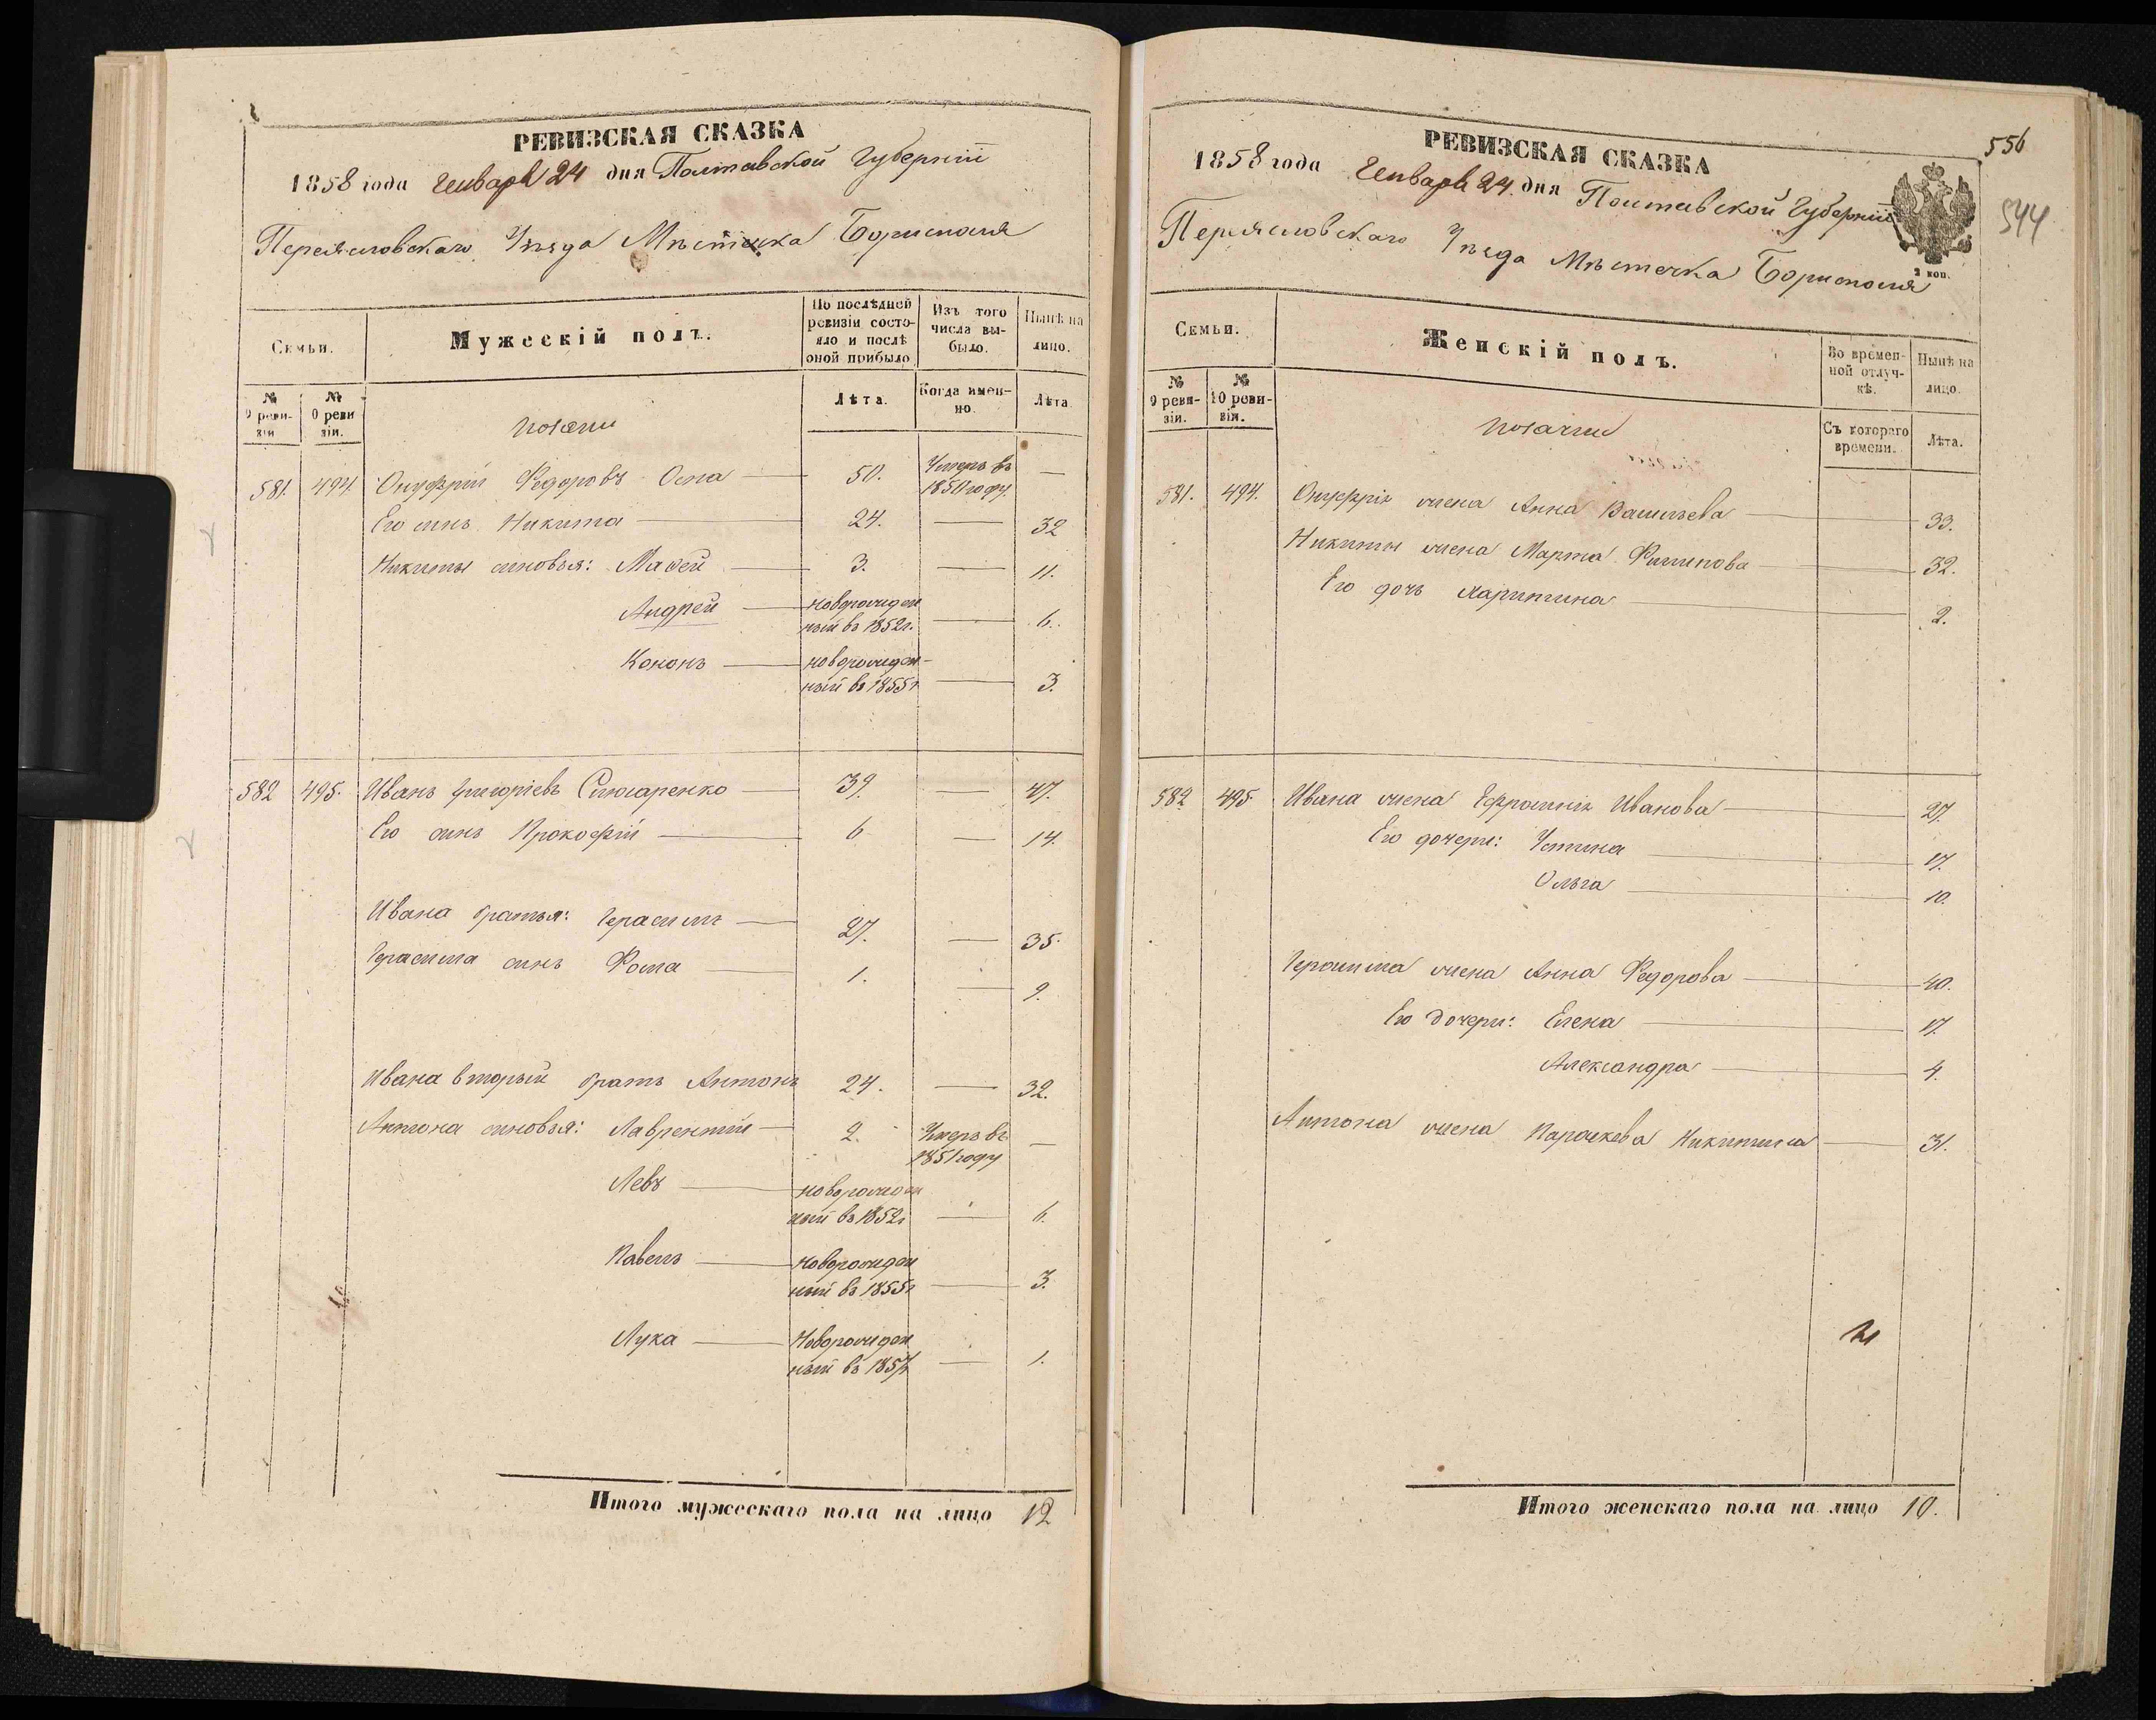 РЕВИЗСКАЯ СКАЗКА
1858 года Генваря 24 дня Полтавской Губернiи
Переяславскаго Уѣзда Мѣстечка Борисполя
Семьи.
Мужескiй полъ.
По послѣдней ревизiи состо-
яло и послѣ
оной прибыло
Изъ того
числа вы-
было.
Нынѣ на
лицо.
№
9 реви-
зiи
№
0 реви
зiи.
Лѣта.
Когда имен-
но.
Лѣта
козаки
581. 494. Онуфрiй Федоровъ Оспа 50. Умеръ въ
1850 году —
Его синъ Никита 24. — 32
Никиты синовья: Мафей 3. — 11.
Андрей новорожден
ный въ 1852г. — 6.
Кононъ новорожден-
ный въ 1855г — 3.
582 495. Иванъ Григорiевъ Слюсаренко 39. — 47.
Его синъ Прокофiй 6 — 14.
Ивана братья: Герасимъ 27. — 35.
Герасима синъ Фома 1. — 9.
Ивана вторый братъ Антонъ 24. — 32.
Антона синовья: Лаврентiй 2. Умеръ въ
1851 году —
Левъ новорожден
ный въ 1852г — 6.
Павелъ новорожден
ный въ 1855г — 3.
Лука Новорожден
ный въ 1857г — 1.
Итого мужескаго пола на лицо 12
556
544
РЕВИЗСКАЯ СКАЗКА
1858 года Генваря 24. дня Полтавской Губернiи
Переяславскаго Уѣзда Мѣстечка Борисполя
2 коп.
Семьи.
Женскiй полъ.
Во времен-
ной отлуч-
кѣ.
Нынѣ на
лицо.
№
9 реви-
зiи.
№
10 реви-
зiи.
Съ котораго
времени.
Лѣта.
козачки
581. 494. Онуфрiя жена Анна Васильева 33.
Никиты жена Марта Филипова 32.
Его дочь Харитина 2.
582 495 Ивана жена Ефросинiя Иванова 27.
Его дочери: Устина 17.
Ольга 10.
Герасима жена Анна Федорова 40.
Его дочери: Елена 17.
Александра 4.
Антона жена Параскева Никитина 31.
Итого женскаго пола на лицо 10.